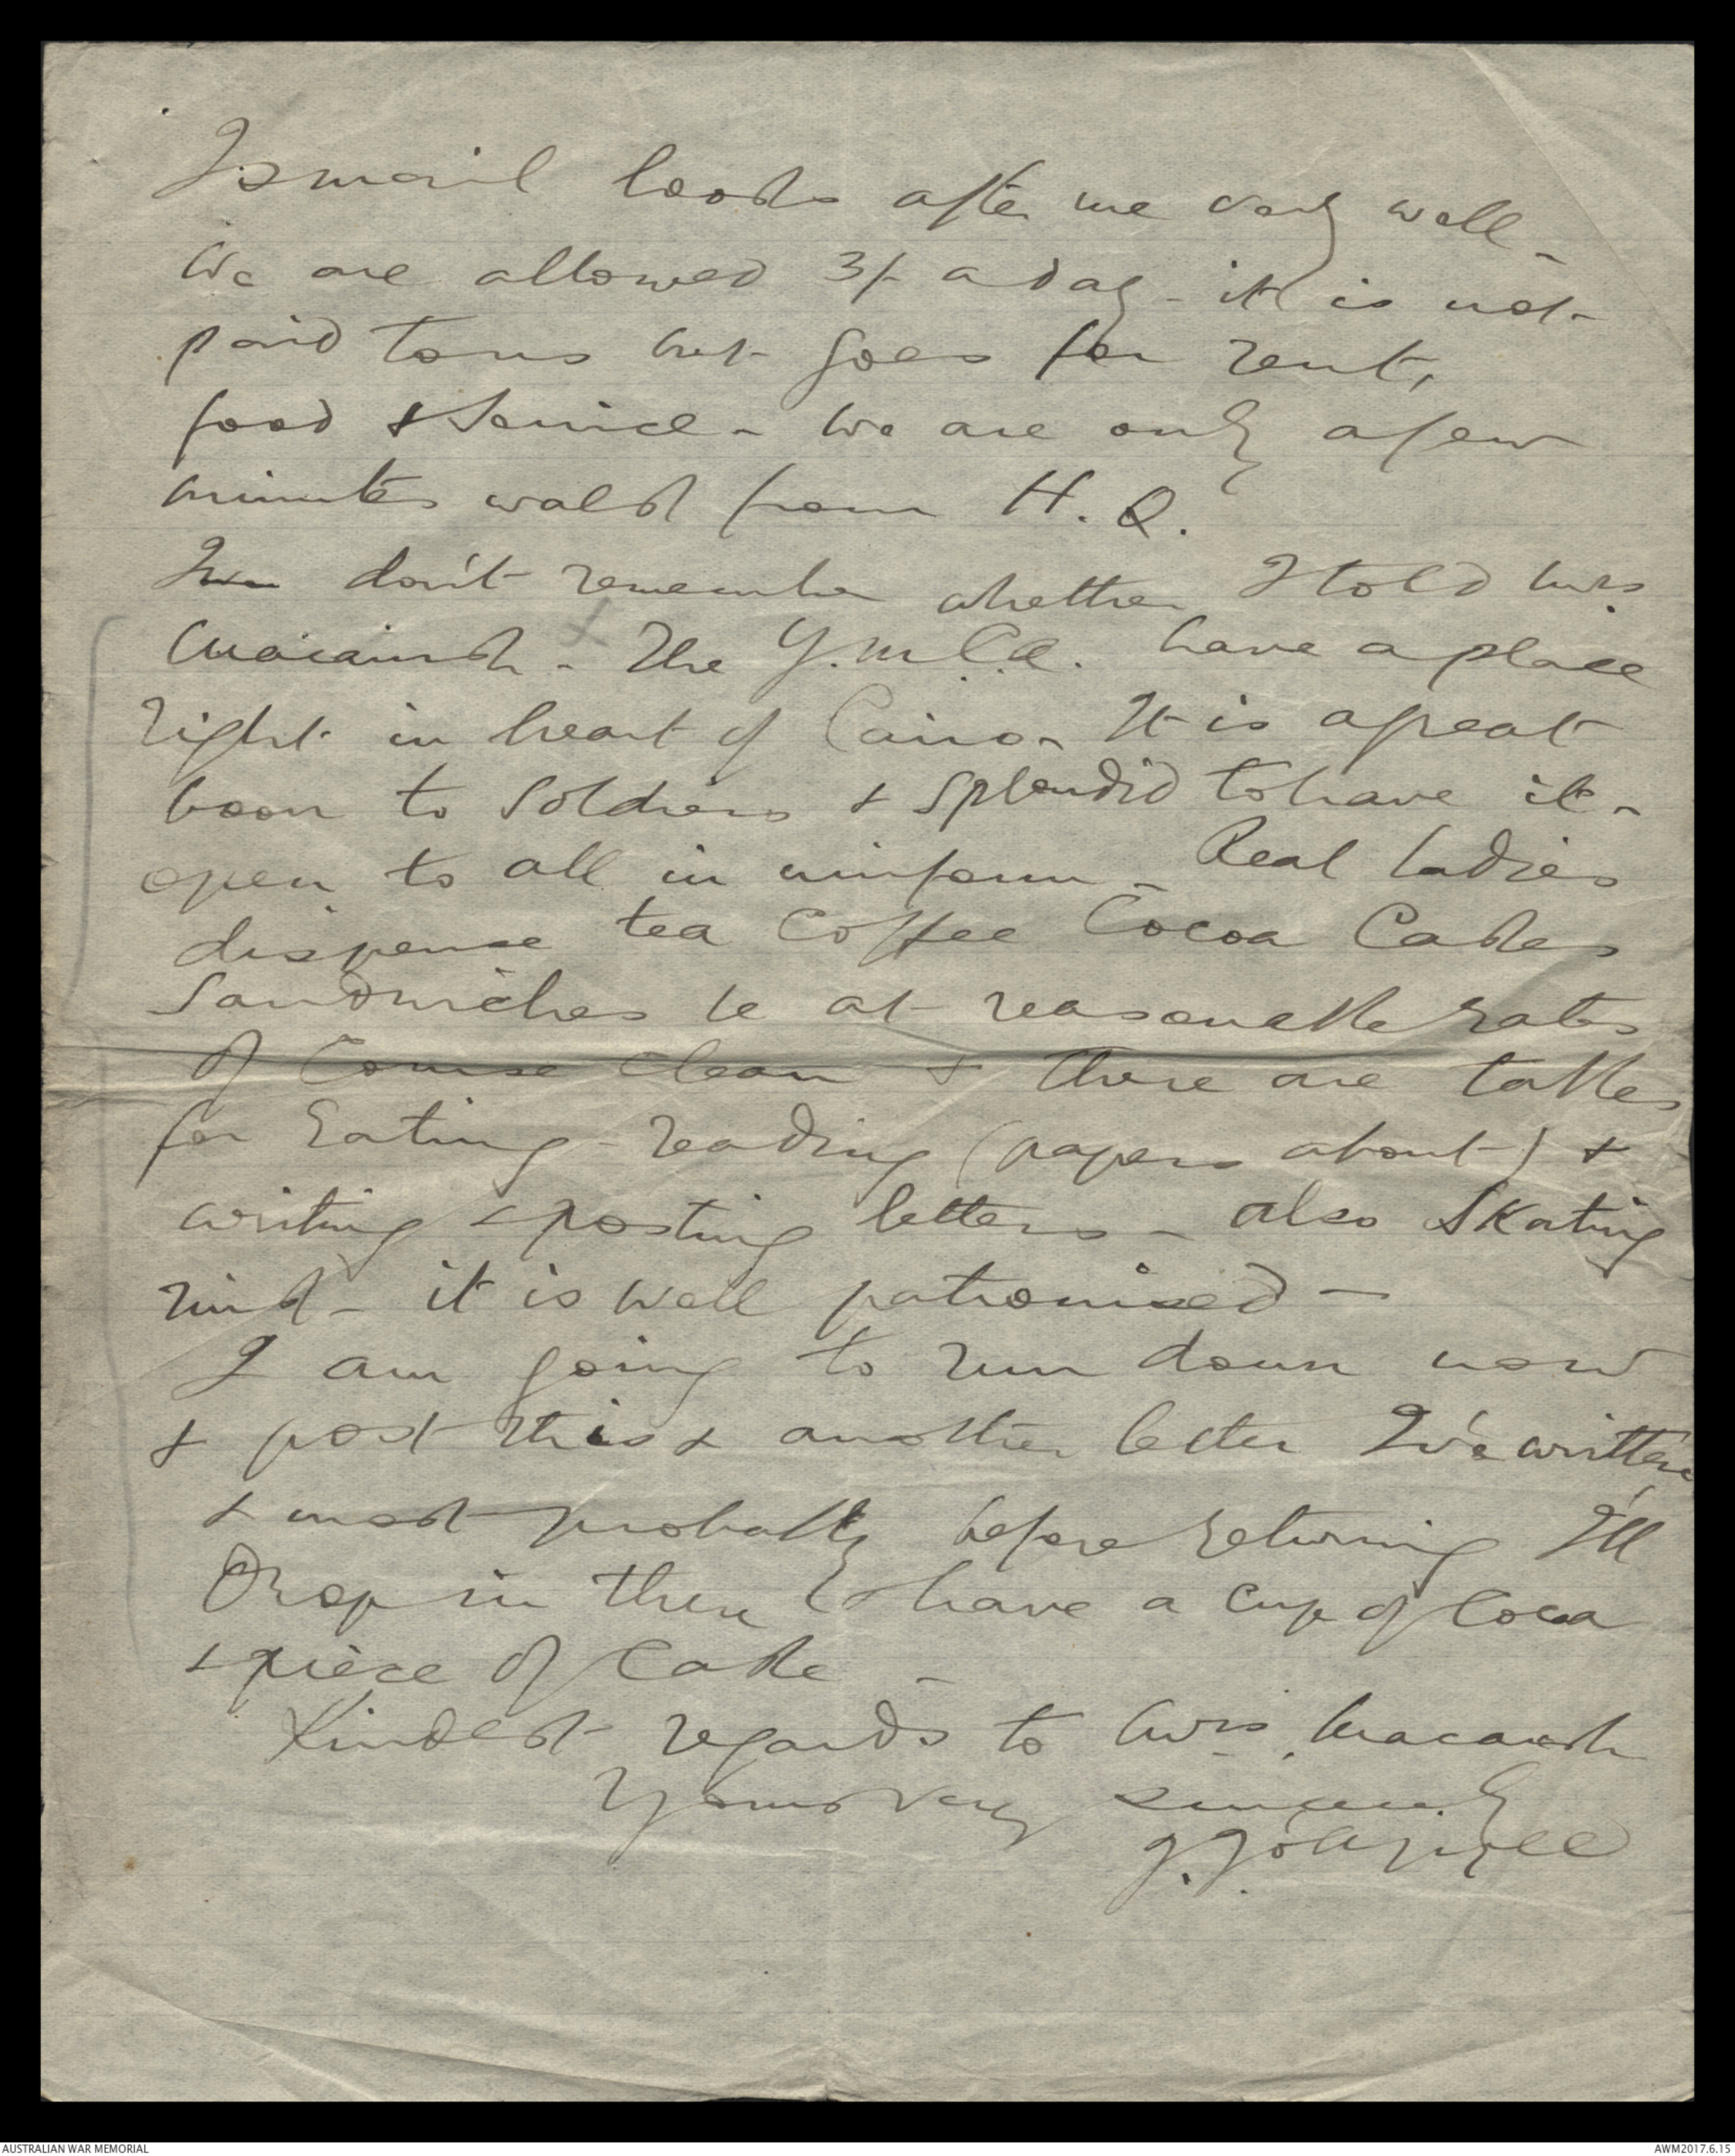 Ismail looks after me very well -
We are allowed 3/- a day - it is not
paid to us but goes for rent,
food & service - We are only a few
minutes walk from H.Q.
I don't remember whether I told Mrs
- The Y.M.C.A. have a place
right in heart of Cairo - It is a great
boon to soldiers & splendid to have it -
open to all in uniform - Real ladies
dispense tea Coffee Cocoa Cakes
Sandwiches &c at reasonable rates
of Course clean & there are tables
for Eating - reading (papers about) &
writing & posting letters - also Skating
rink - it is well patronised -
I am going to run down now
& post this & another letter I've written
& most probably before returning I'll
Drop in there & have a cup of Cocoa
& piece of Cake -
Kindest regards to Mrs.
Yours very sincerely
J.J.
AUSTRALIAN WAR MEMORIAL
AWM2017.6.15